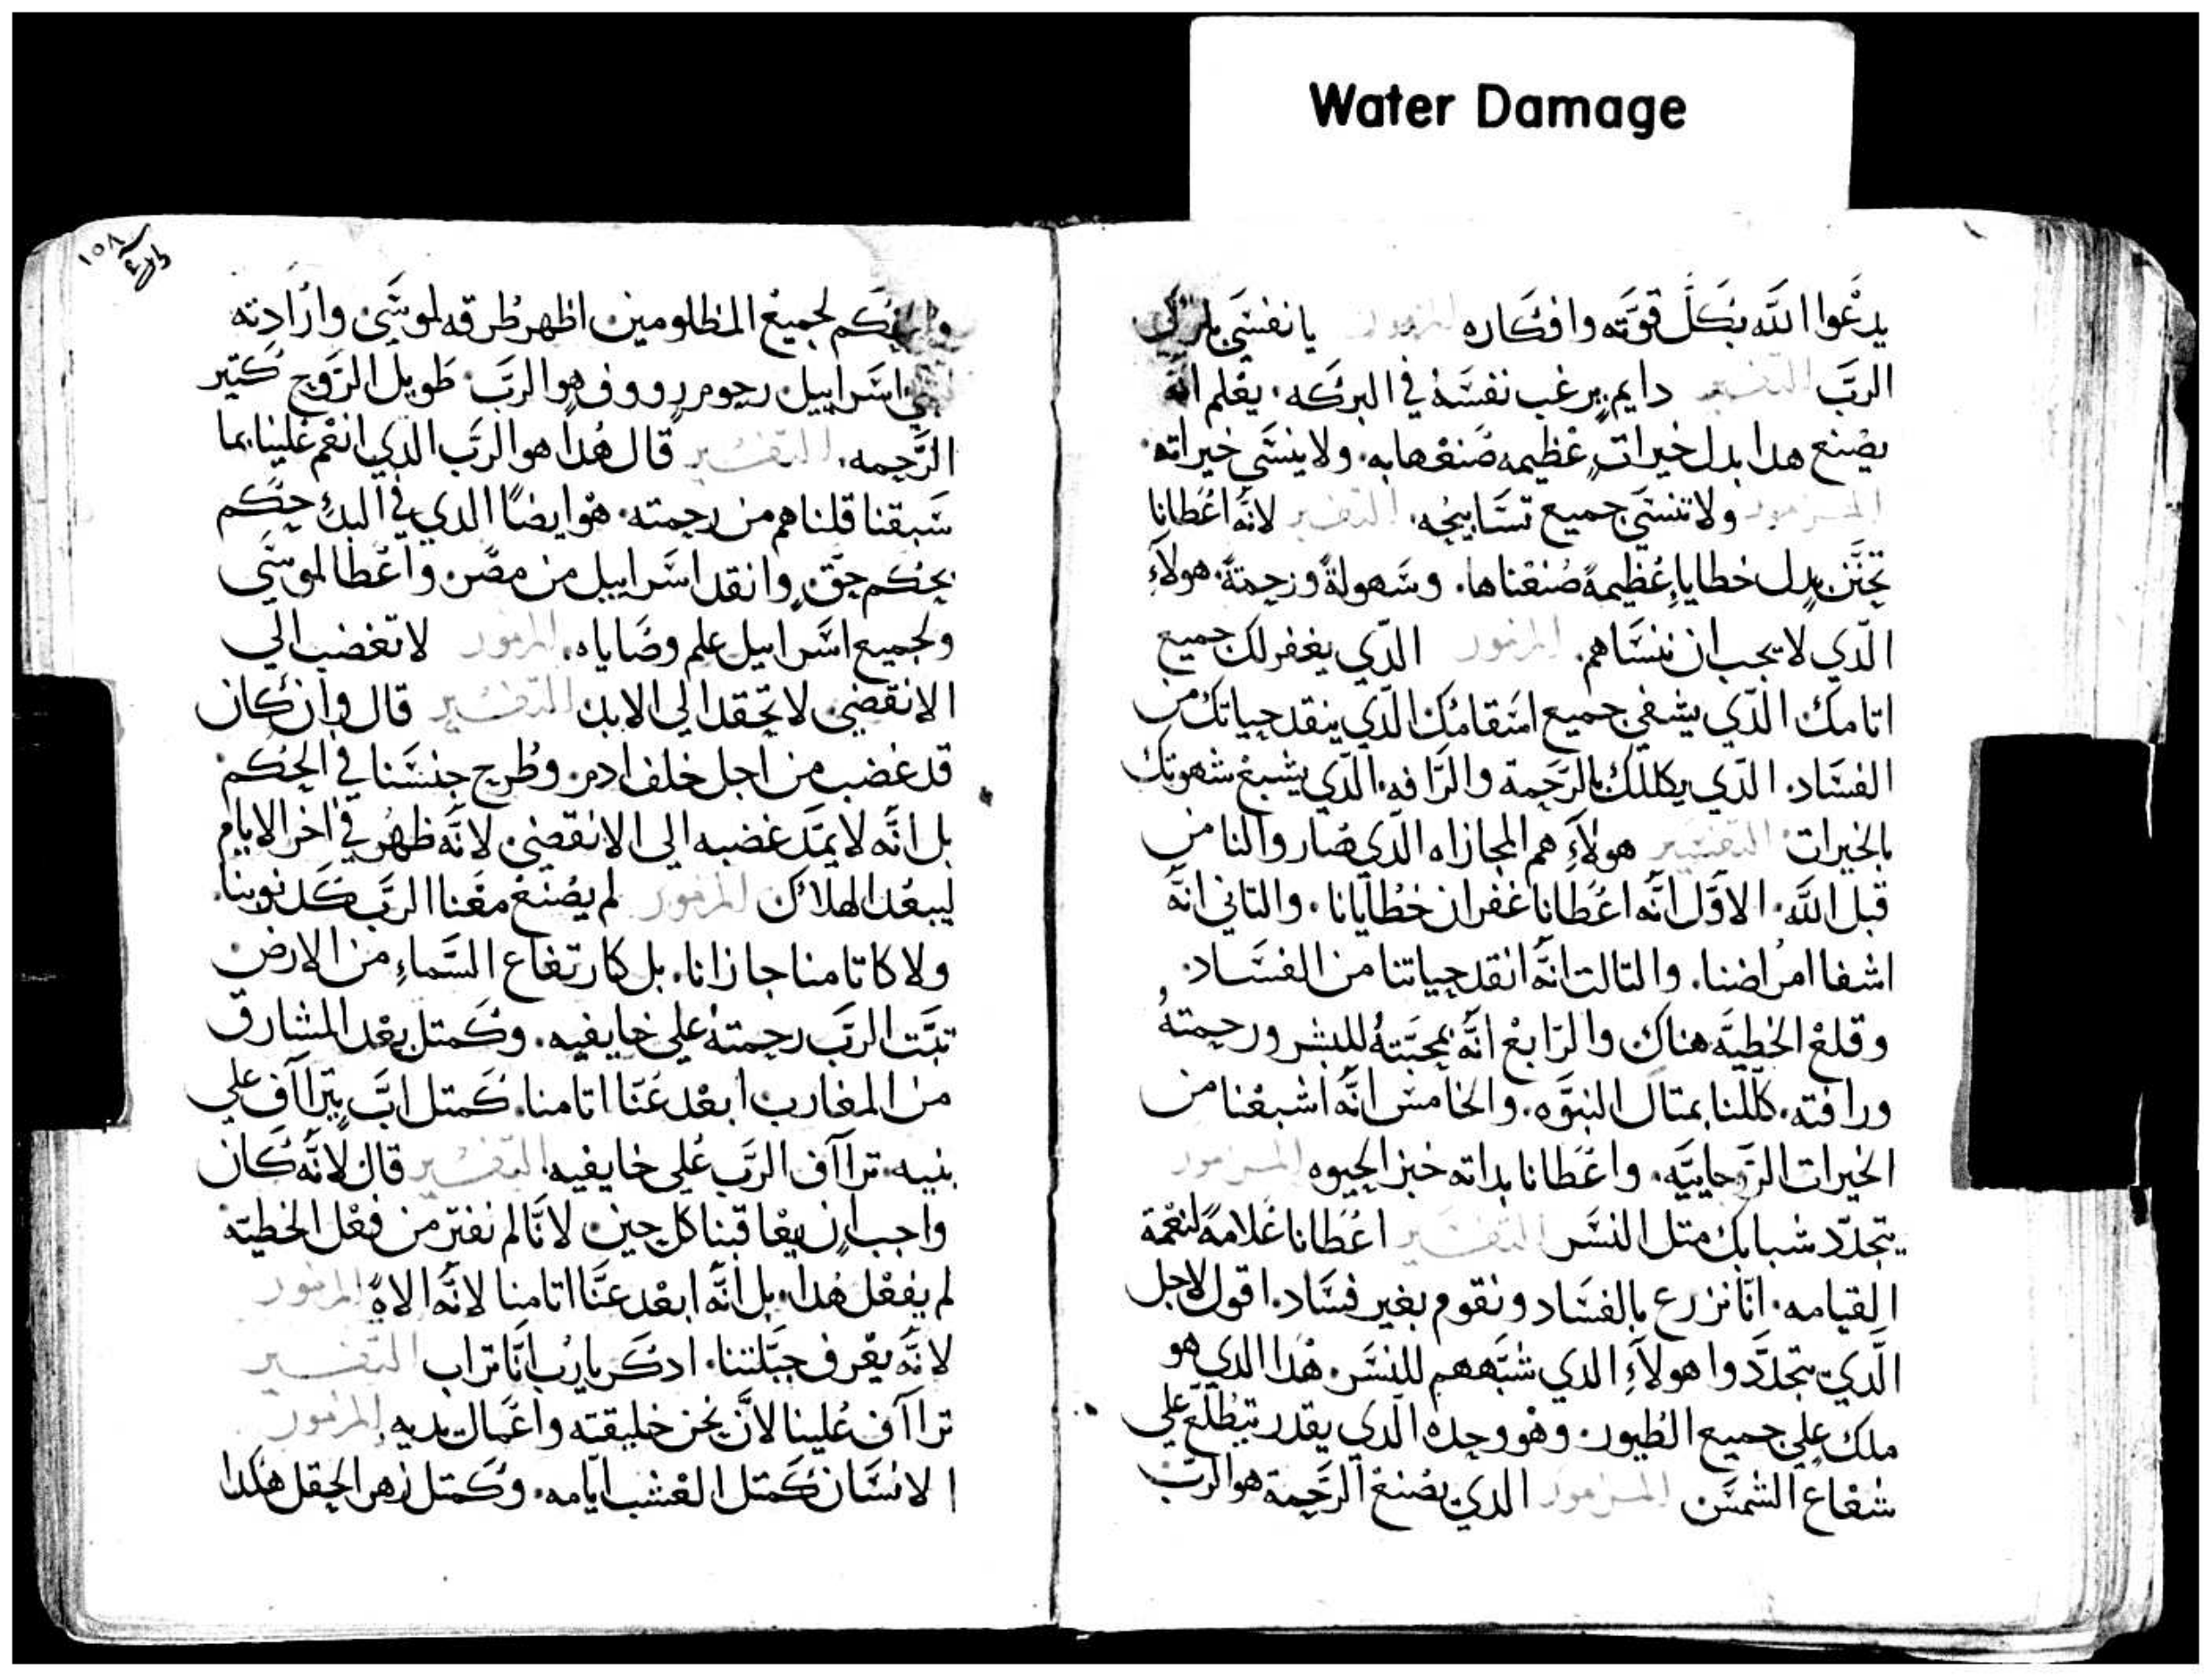 Water Damage
يدعوا الله بكل قوته وافكاره المزمور يا نفسي باركي
الرب التفسير دايم يرغب نفسه في البركه. يعلم انه
يصنع هدا بدل خيرات عظيمه صنعها به. ولا ينسي خيراته.
المزمور ولا تنسي جميع تسابيحه. التفسير لانه اعطانا
تحنن بدل خطايا عظيمة صنعناها. وسهولة ورحمة. هولاء
الدي لا يجب ان ننساهم. المزمور الدي يغفر لك جميع
اتامك الدي يشفي جميع اسقامك الدي ينقد حياتك من
الفساد. الدي يكللك بالرحمة والرافه. الدي يشبع شهوتك
بالخيرات التفسير هولاء هم المجازاه الدي صار والنا من
قبل الله. الاول انه اعطانا غفران خطايانا. والتاني انه
اشفا امراضنا. والتالت انه انقد حياتنا من الفساد.
وقلع الخطيه هناك والرابع انه بمحبته للبشر ورحمته
ورافته. كللنا بمتال النبوه. والخامس انه اشبعنا من
الخيرات الروحانيه. واعطانا بداته خبز الحيوه المزمور
يتجدد شبابك متل النسر التفسير اعطانا علامة لنعمة
القيامه. اننا نزرع بالفساد ونقوم بغير فساد. اقول لاجل
الدي يتجددوا هولاء الدي شبههم للنسر. هدا الدي هو
ملك علي جميع الطيور. وهو وحده الدي يقدر يتطلع علي
شعاع الشمس المزمور الدي يصنع الرحمة هو الرب
١٥٨
والحكم لجميع المظلومين اظهر طرقه لموسي وارادته
لبني اسراييل رحوم رووف هو الرب. طويل الروح كتير
الرحمه. التفسير قال هدا هو الرب الدي انعم علينا بما
سبقنا قلناهم من رحمته. هو ايضا الدي في البدء حكم
بحكم حق وانقد اسراييل من مصر واعطا لموسي
ولجميع اسراييل علم وصاياه. المزمور لا تغضب الي
الانقضي لا تحقد الي الابد التفسير قال وان كان
قد غضب من اجل خلف ادم. وطرح جنسنا في الحكم.
بل انه لا يمتد غضبه الي الانقضي لانه ظهر في اخر الايام
ليبعد الهلاك المزمور لم يصنع معنا الرب كدنوبنا.
ولا كاتامنا جازانا. بل كارتفاع السماء من الارض
تبت الرب رحمته علي خايفيه. وكمتل بعد المشارق
من المغارب ابعد عنا اتامنا. كمتل اب يتراآف علي
بنيه. تراآف الرب علي خايفيه التفسير قال لانه كان
واجب ان يعاقبنا كل حين لاننا لم نفتر من فعل الخطية
لم يفعل هدا. بل انه ابعد عنا اتامنا لانه الاه المزمور
لانه يعرف جبلتنا. ادكر يا رب اننا تراب التفسير
تراآف علينا لان نحن خليقته واعمال يديه المزمور
الانسان كمتل العشب ايامه. وكمتل زهر الحقل هكدا